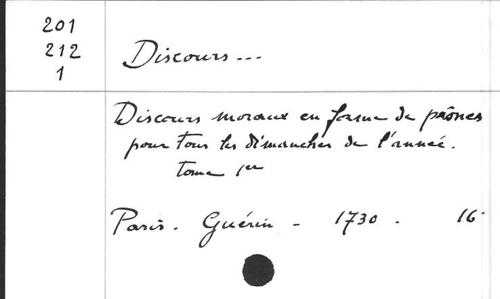 201
212
1
Discours...
Discours moraux en forme de prônes
pour tous les dimanches de l'année.
Tome 1er
Paris. Guérin - 1730 - 16°